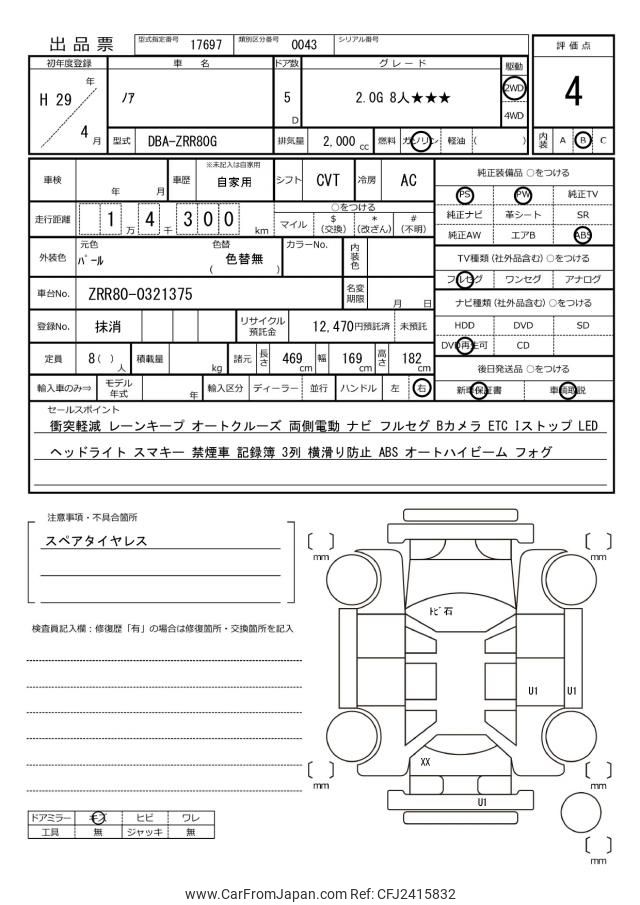 出品票 型式指定番号 17697 類別区分番号 0043 シリアル番号
評価点
4
内装 A B C
初年度登録 車名 ドア数 グレード 駆動
H 29 年 ノア 5 D 2.0G 8人★★★ 2WD
4WD
4 月 型式 DBA-ZRR80G 排気量 2,000 cc 燃料 ガソリン 軽油 ( )
車検 年 月 車歴 ※未記入は自家用 自家用 シフト CVT 冷房 AC
走行距離 1 万 4 千 3 0 0 km ○をつける
マイル $ (交換) * (改ざん) # (不明)
外装色 元色 パール 色替 ( 色替無 ) カラーNo. 内装色
車台No. ZRR80-0321375 名変期限 月 日
登録No. 抹消 リサイクル預託金 12,470円預託済 未預託
定員 8 ( ) 人 積載量 kg 諸元 長さ 469 cm 幅 169 cm 高さ 182 cm
輸入車のみ⇒ モデル年式 年 輸入区分 ディーラー 並行 ハンドル 左 右
純正装備品 ○をつける
PS PW 純正TV
純正ナビ 革シート SR
純正AW エアB ABS
TV種類 (社外品含む) ○をつける
フルセグ ワンセグ アナログ
ナビ種類 (社外品含む) ○をつける
HDD DVD SD
DVD再生可 CD
後日発送品 ○をつける
新車保証書 車輌取説
セールスポイント
衝突軽減 レーンキープ オートクルーズ 両側電動 ナビ フルセグ Bカメラ ETC Iストップ LED
ヘッドライト スマキー 禁煙車 記録簿 3列 横滑り防止 ABS オートハイビーム フォグ
注意事項・不具合箇所
スペアタイヤレス
検査員記入欄：修復歴「有」の場合は修復箇所・交換箇所を記入
mm
mm
トビ石
U1 U1
XX
U1
mm
mm
mm
ドアミラー キズ ヒビ ワレ
工具 無 ジャッキ 無
www.CarFromJapan.com Ref: CFJ2415832